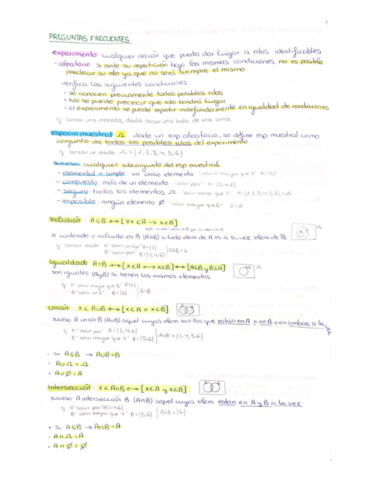 PREGUNTAS FRECUENTES
experimento cualquier acción que pueda dar lugar a rdos identificables
· aleatorio si ante su repetición bajo las mismas condiciones no es posible
predecir su rdo ya que no será siempre el mismo
verifica las siguientes condiciones
· se conocen previamente todos posibles rdos
· No se puede predecir que rdo tendrá lugar
· el experimento se puede repetir indefinidamente en igualdad de condiciones
ej lanzar una moneda, dado, sacar una bola de una urna
espacio muestral Ω dado un exp aleatorio, se define esp muestral como
conjunto de todos los posibles rdos del experimento
ej lanzar un dado Ω = {1, 2, 3, 4, 5, 6}
Suceso: cualquier subconjunto del esp muestral
· elemental o simple: un único elemento "salir mayor que 5" A={6}
· compuesto: más de un elemento "salir par" A={2,4,6}
· seguro: todos los elementos Ω
· imposible: ningún elemento ∅
Inclusión: A⊆B ⟷ [∀x∈A → x∈B]
A contenido o incluido en B (A⊆B) si todo elem de A es a su vez elem de B
Igualdad: A=B ⟷ [x∈A ⟷ x∈B] ⟷ [A⊆B y B⊆A]
son iguales (A y B) si tienen los mismos elementos
Unión: x∈A∪B ⟷ [x∈A o x∈B]
suceso A unión B (A∪B) aquel cuyos elem son los que están en A o en B o en ambos a la vez
ej A="salir par" A={2,4,6}
B="salir mayor que 4" B={5,6}
A∪B = {2,4,5,6}
· si A⊆B → A∪B=B
· A∪Ω=Ω
· A∪∅=A
Intersección: x∈A∩B ⟷ [x∈A y x∈B]
suceso A intersección B (A∩B) aquel cuyos elem están en A y B a la vez
ej A="salir par" A={2,4,6}
B="salir mayor que 4" B={5,6}
A∩B={6}
· si A⊆B → A∩B=A
· A∩Ω=A
· A∩∅=∅